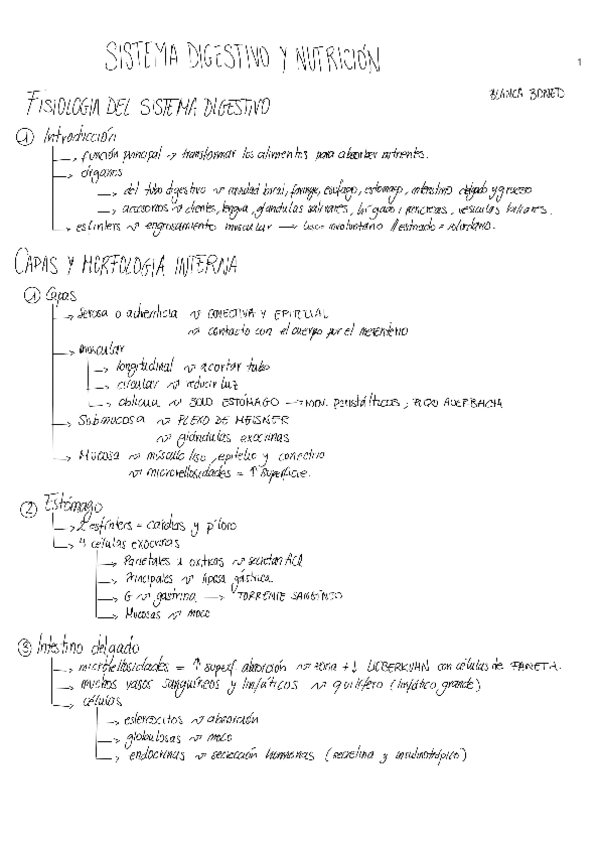 SISTEMA DIGESTIVO Y NUTRICIÓN
1
BLANCA BONETO
FISIOLOGIA DEL SISTEMA DIGESTIVO
① Introducción
→ función principal ~> transformar los alimentos para absorber nutrientes.
→ órganos
→ del tubo digestivo ~> cavidad bucal, faringe, esófago, estómago, intestino delgado y grueso
→ accesorios ~> dientes, lengua, glándulas salivares, hígado, páncreas, vesículas biliares.
→ esfínters ~> engrosamiento muscular → liso = involuntario // estriado = voluntario.
CAPAS Y MORFOLOGIA INTERNA
① Capas
→ Serosa o adventicia ~> CONECTIVA Y EPITELIAL
~> contacto con el cuerpo por el mesenterio
→ muscular
→ longitudinal ~> acortar tubo
→ circular ~> reducir luz
→ oblicua ~> SOLO ESTÓMAGO → mov. peristálticos; PLEXO AUERBACH
→ Submucosa ~> PLEXO DE MEISNER
~> glándulas exocrinas
→ Mucosa ~> músculo liso, epitelio y conectivo
~> microvellosidades = ↑ superficie.
② Estómago
→ 2 esfínters = cardias y píloro
→ 4 células exocrinas
→ Parietales u oxíticas ~> secretan ACl
→ Principales ~> lipasa gástrica
→ G ~> gastrina → TORRENTE SANGUÍNEO
→ Mucosas ~> moco
③ Intestino delgado
→ microvellosidades = ↑ superf. absorción ~> LIEBERKUHN con células de PANETA.
→ muchos vasos sanguíneos y linfáticos ~> quilífero (linfático grande)
→ células
→ enterocitos ~> absorción
→ globulosas ~> moco
→ endocrinas ~> secreción hormonas (secretina y insulinotrópico)